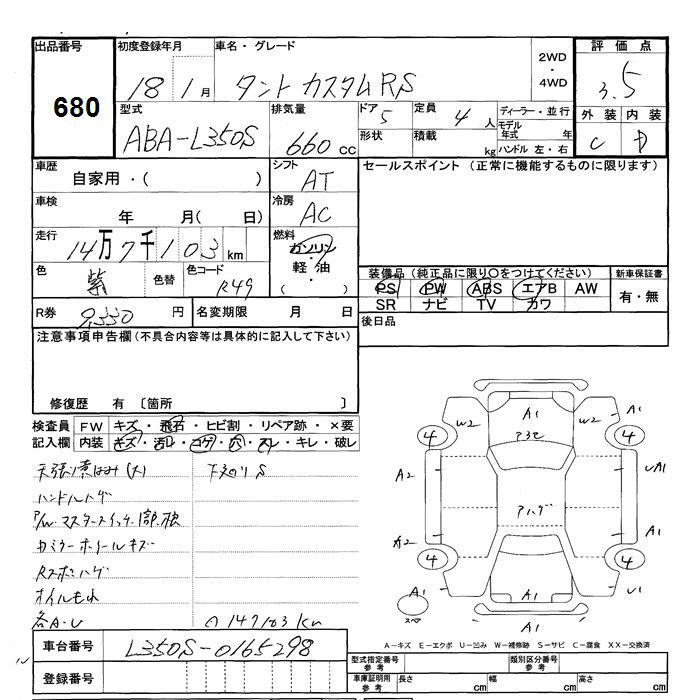 出品番号 初度登録年月 車名・グレード 2WD・4WD 評価点
680 18 1月 タントカスタムRS 3.5
型式 排気量 ドア 定員 ディーラー・並行 外装 内装
ABA-L350S 660cc 5 4人 モデル年式 年 C D
形状 積載 kg ハンドル 左・右
車歴 シフト セールスポイント (正常に機能するものに限ります)
自家用・( ) AT
車検 冷房
年 月( 日) AC
走行 燃料
14万7千103km ガソリン・軽油
色 色替 色コード ( ) 装備品(純正品に限り○をつけてください) 新車保証書
紫 R49 PS PW ABS エアB AW 有・無
SR ナビ TV カワ
R券 9330円 名変期限 月 日 後日品
注意事項申告欄(不具合内容等は具体的に記入して下さい)
修復歴 有 〔箇所 〕
検査員 FW キズ・飛石・ヒビ割・リペア跡・×要
記入欄 内装 キズ・汚レ・コゲ・穴・スレ・キレ・破レ
ハンドルハゲ
P/W.マスタースイッチ
ホイールキズ
オイルもれ
各A-U
147103km
A1
W2 A1 W2 A1
4 4
A2 UA1
アハゲ
A2 A1
4 4
A1 A1 U1
スペア
A1
A－キズ E－エクボ U－凹み W－補修跡 S－サビ C－腐食 XX－交換済
車台番号 L350S-0165298
登録番号
型式指定番号 参考 類別区分番号 参考
車庫証明用 参考 長さ cm 幅 cm 高さ cm